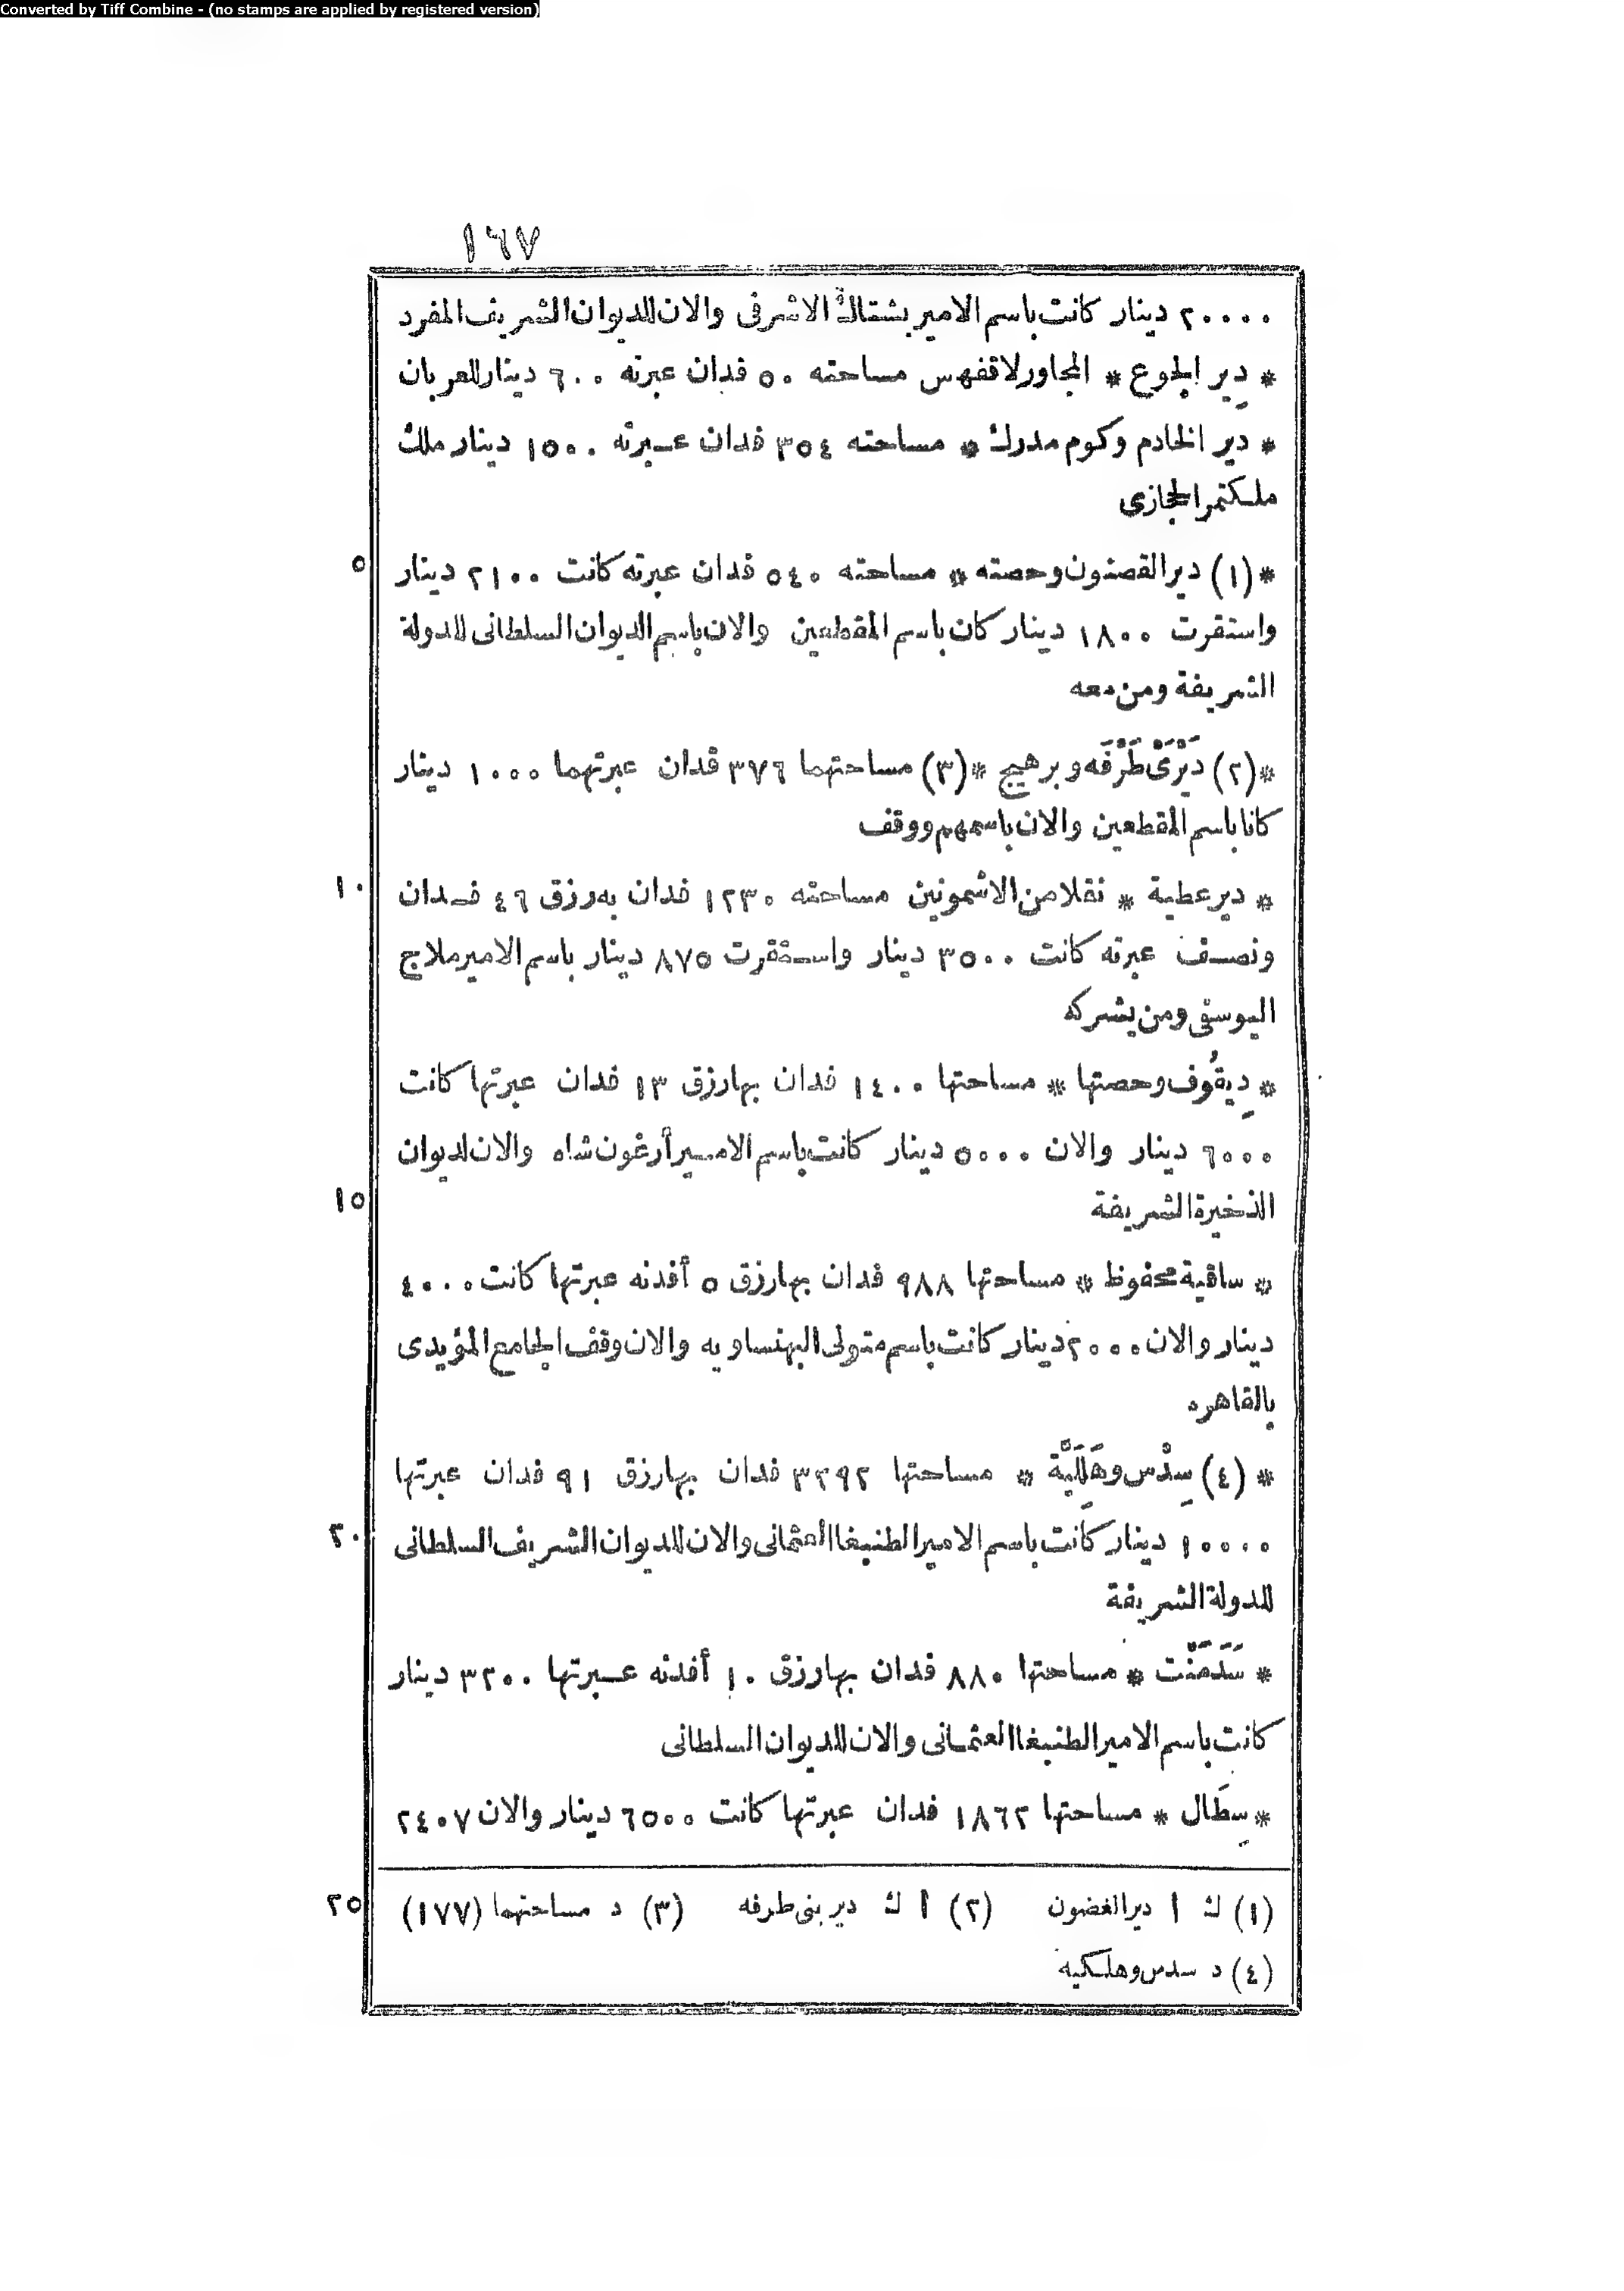 Converted by Tiff Combine - (no stamps are applied by registered version)
١٦٧
٢٠٠٠٠ دينار كانت باسم الامير بشتاك الاشرفى والان للديوان الشريف المفرد
* دِير الجوع * المجاور لاقفهس مساحته ٥٠ فدان عبرته ٦٠٠ دينار للعربان
* دير الخادم وكوم مدرك * مساحته ٣٥٤ فدان عبرته ١٥٠٠ دينار ملك
ملكتمر الحجازى
٥ *(١) دير القصنون وحصته * مساحته ٥٤٠ فدان عبرته كانت ٢١٠٠ دينار
واستقرت ١٨٠٠ دينار كان باسم المقطعين والان باسم الديوان السلطانى للدولة
الشريفة ومن معه
*(٢) دَيْرَىْ طَرْفَه وبرهيج *(٣) مساحتهما ٣٧٦ فدان عبرتهما ١٠٠٠ دينار
كانا باسم المقطعين والان باسمهم ووقف
١٠ * دير عطية * نقلا من الاشمونين مساحته ١٢٣٠ فدان به رزق ٤٦ فدان
ونصف عبرته كانت ٣٥٠٠ دينار واستقرت ٨٧٥ دينار باسم الامير ملاج
اليوسفى ومن يشركه
* دِيقُوف وحصتها * مساحتها ١٤٠٠ فدان بها رزق ١٣ فدان عبرتها كانت
٦٠٠٠ دينار والان ٥٠٠٠ دينار كانت باسم الامير أرغون شاه والان لديوان
١٥ الذخيرة الشريفة
* ساقية محفوظ * مساحتها ٩٨٨ فدان بها رزق ٥ أفدنه عبرتها كانت ٤٠٠٠
دينار والان ٢٠٠٠ دينار كانت باسم متولى البهنساويه والان وقف الجامع المؤيدى
بالقاهره
* (٤) سِدْس وهَلَِيَّة * مساحتها ٣٢٩٢ فدان بها رزق ٩١ فدان عبرتها
٢٠ ١٠٠٠٠ دينار كانت باسم الامير الطنبغا العثمانى والان للديوان الشريف السلطانى
للدولة الشريفة
* سَدَمَنْت * مساحتها ٨٨٠ فدان بها رزق ١٠ أفدنه عبرتها ٣٢٠٠ دينار
كانت باسم الامير الطنبغا العثمانى والان للديوان السلطانى
* سِطَال * مساحتها ١٨٦٢ فدان عبرتها كانت ٦٥٠٠ دينار والان ٢٤٠٧
٢٥ (١) ك ا دير الغضون (٢) ا ك دير بنى طرفه (٣) د مساحتهما (١٧٧)
(٤) د سدس وهلكيه